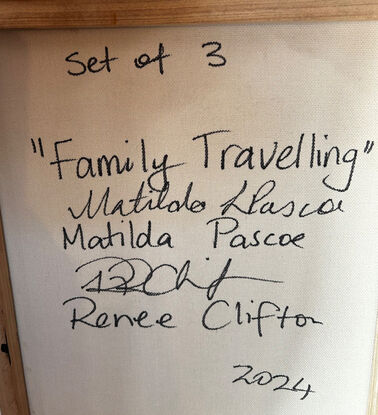 Set of 3
"Family Travelling"
Matilda Pascoe
Matilda Pascoe
Renee Clifton
2024